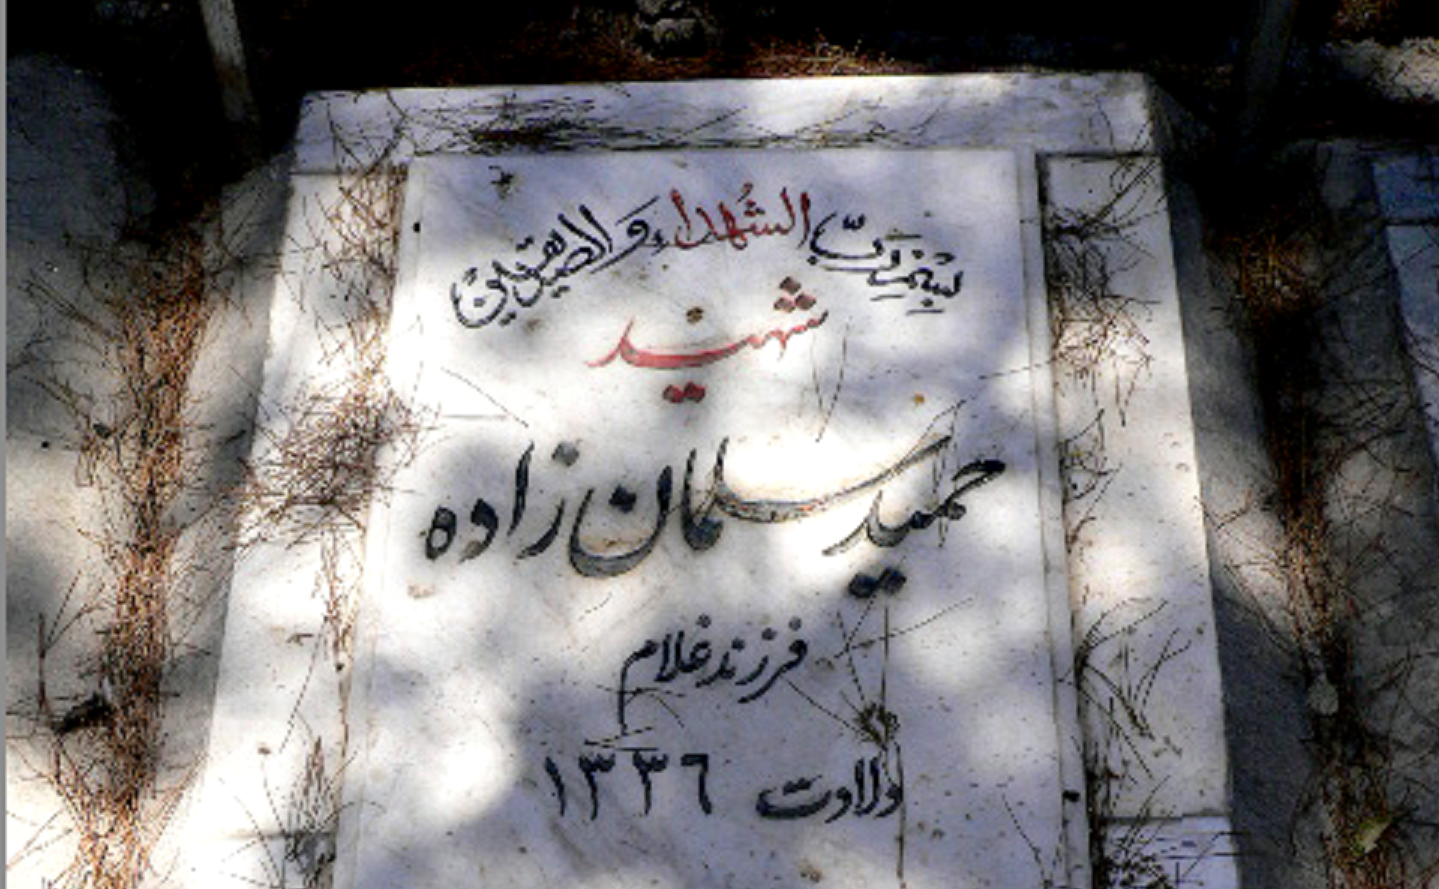 بسم رب الشهداء و الصدیقین
شهید
حمید سلمان زاده
فرزند غلام
ولادت ۱۳۳۶